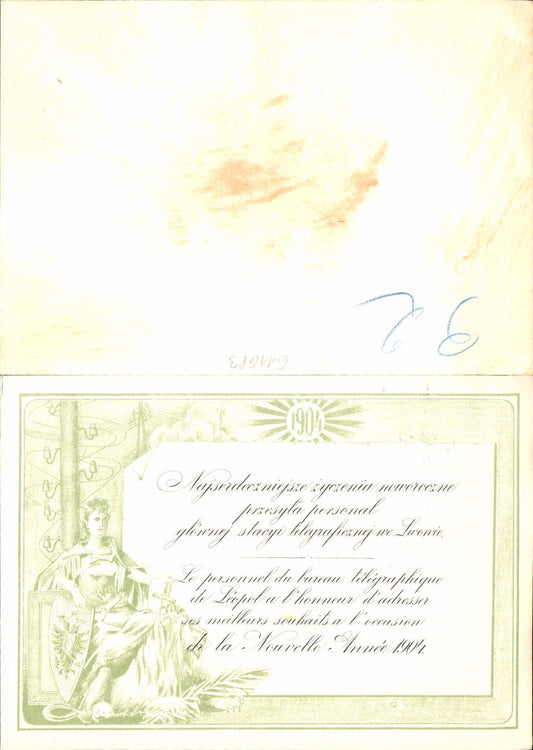 92
61683
1904
Najserdeczniejsze życzenia noworoczne
przesyła personal
głównej stacyi telegraficznej we Lwowie.
Le personnel du bureau télégraphique
de Léopol a l'honneur d'adresser
ses meilleurs souhaits a l'occasion
de la Nouvelle Année 1904.